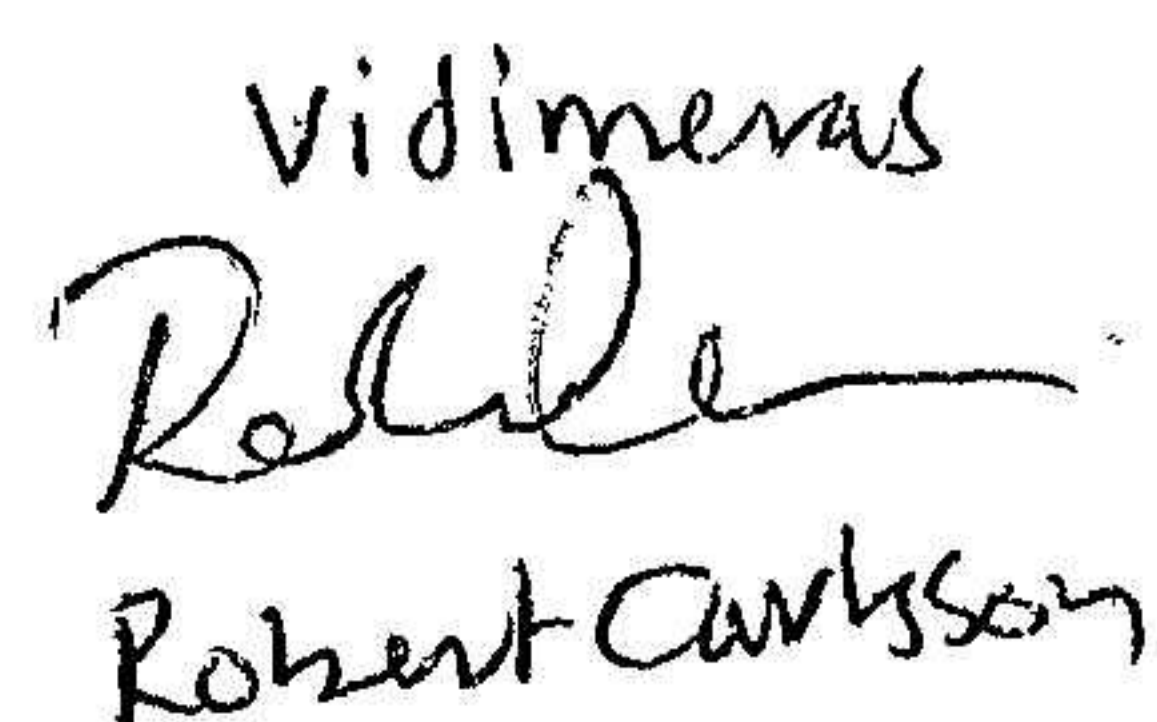 Vidimeras
Robert Carlsson